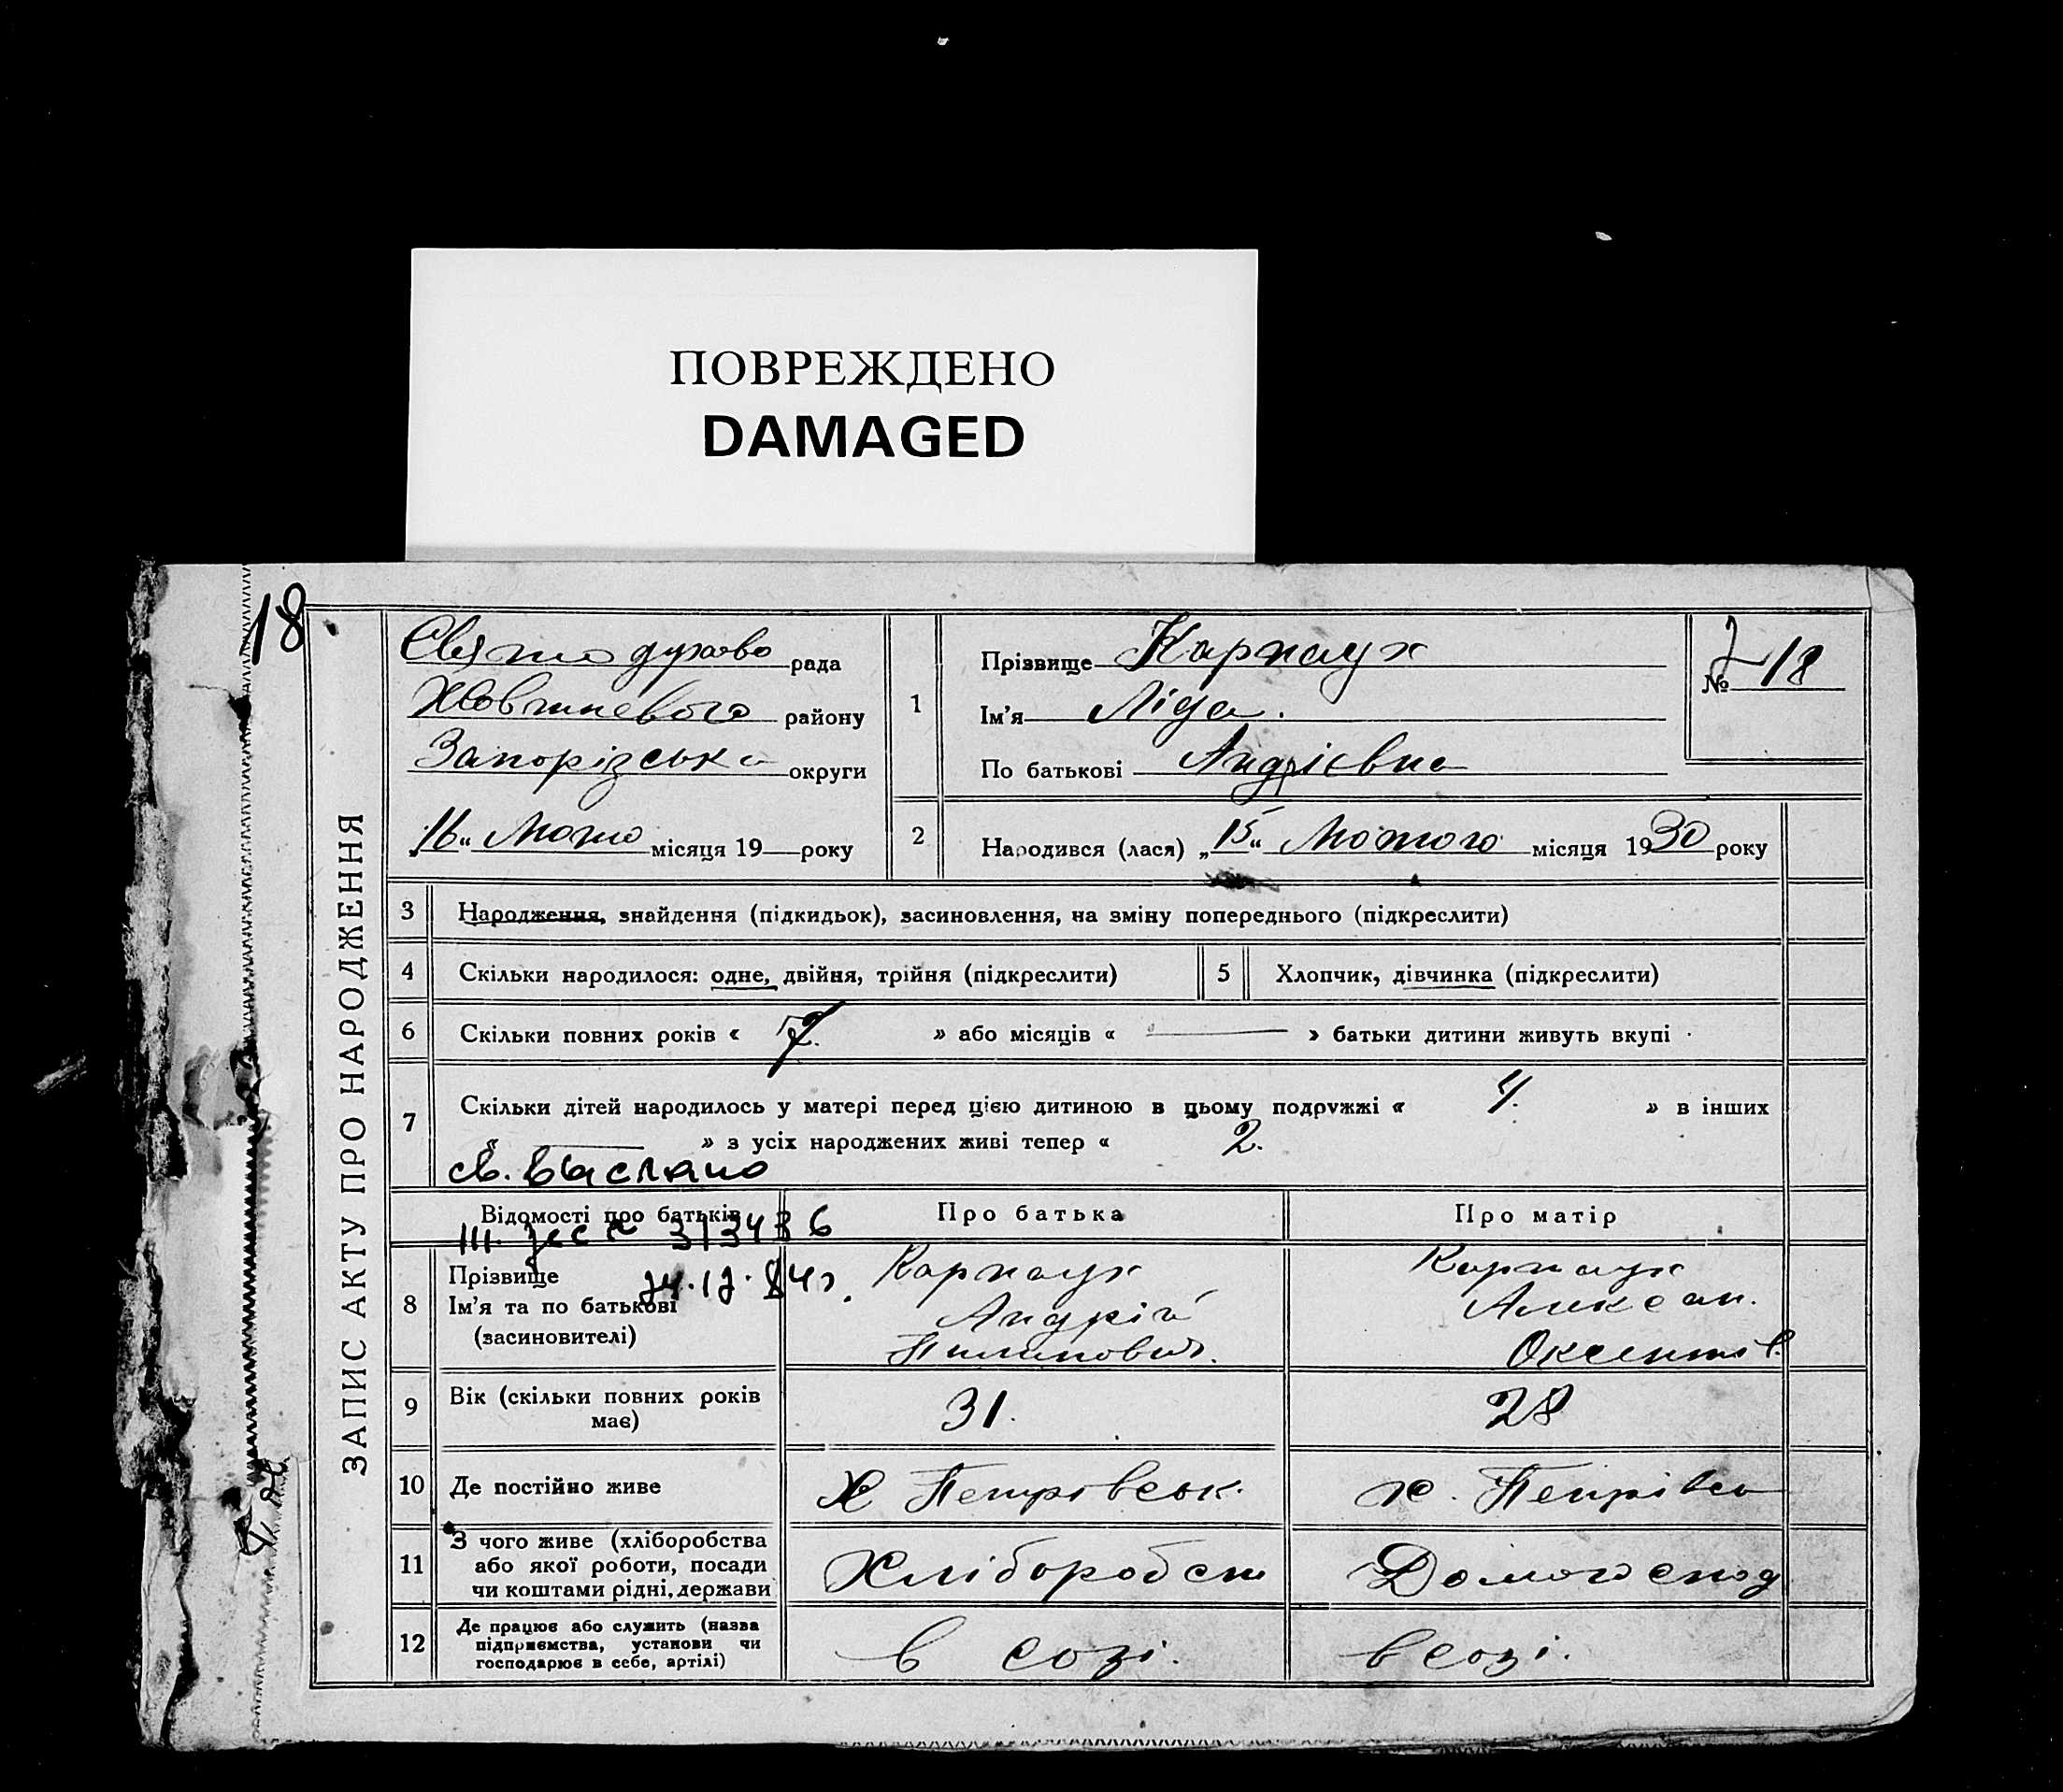 ПОВРЕЖДЕНО
DAMAGED
18
ЗАПИС АКТУ ПРО НАРОДЖЕННЯ
Свято духово рада
Жовтневого району
Запорізська округи
„16“ Лютю місяця 19 року
1
Прізвище Карпаух
Ім'я Ліда.
По батькові Андрієвна
№ 18
2
Народився (лася) „15“ Лютого місяця 1930 року
3 Народження, знайдення (підкидьок), засиновлення, на зміну попереднього (підкреслити)
4 Скільки народилося: одне, двійня, трійня (підкреслити)
5 Хлопчик, дівчинка (підкреслити)
6 Скільки повних років « » або місяців « » батьки дитини живуть вкупі
7 Скільки дітей народилось у матері перед цією дитиною в цьому подружжі « 4. » в інших
« » з усіх народжених живі тепер « 2.
св. выслано
Відомості про батьків
Про батька
Про матір
III 313436
24.12.84г.
8 Прізвище
Ім'я та по батькові
(засиновителі)
Карпаух
Андрій
Пилипович.
Карпаух
Алексан.
Оксентів.
9 Вік (скільки повних років
має)
31.
28
10 Де постійно живе
Х Петровськ.
х. Петрівсь
11 З чого живе (хліборобства
або якої роботи, посади
чи коштами рідні, держави
Хліборобст
Домогоспод
12 Де працює або служить (назва
підприємства, установи чи
господарює в себе, артілі)
в созі.
в созі.